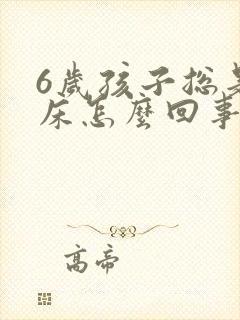 6歲孩子總是
床怎麼回事
高帝